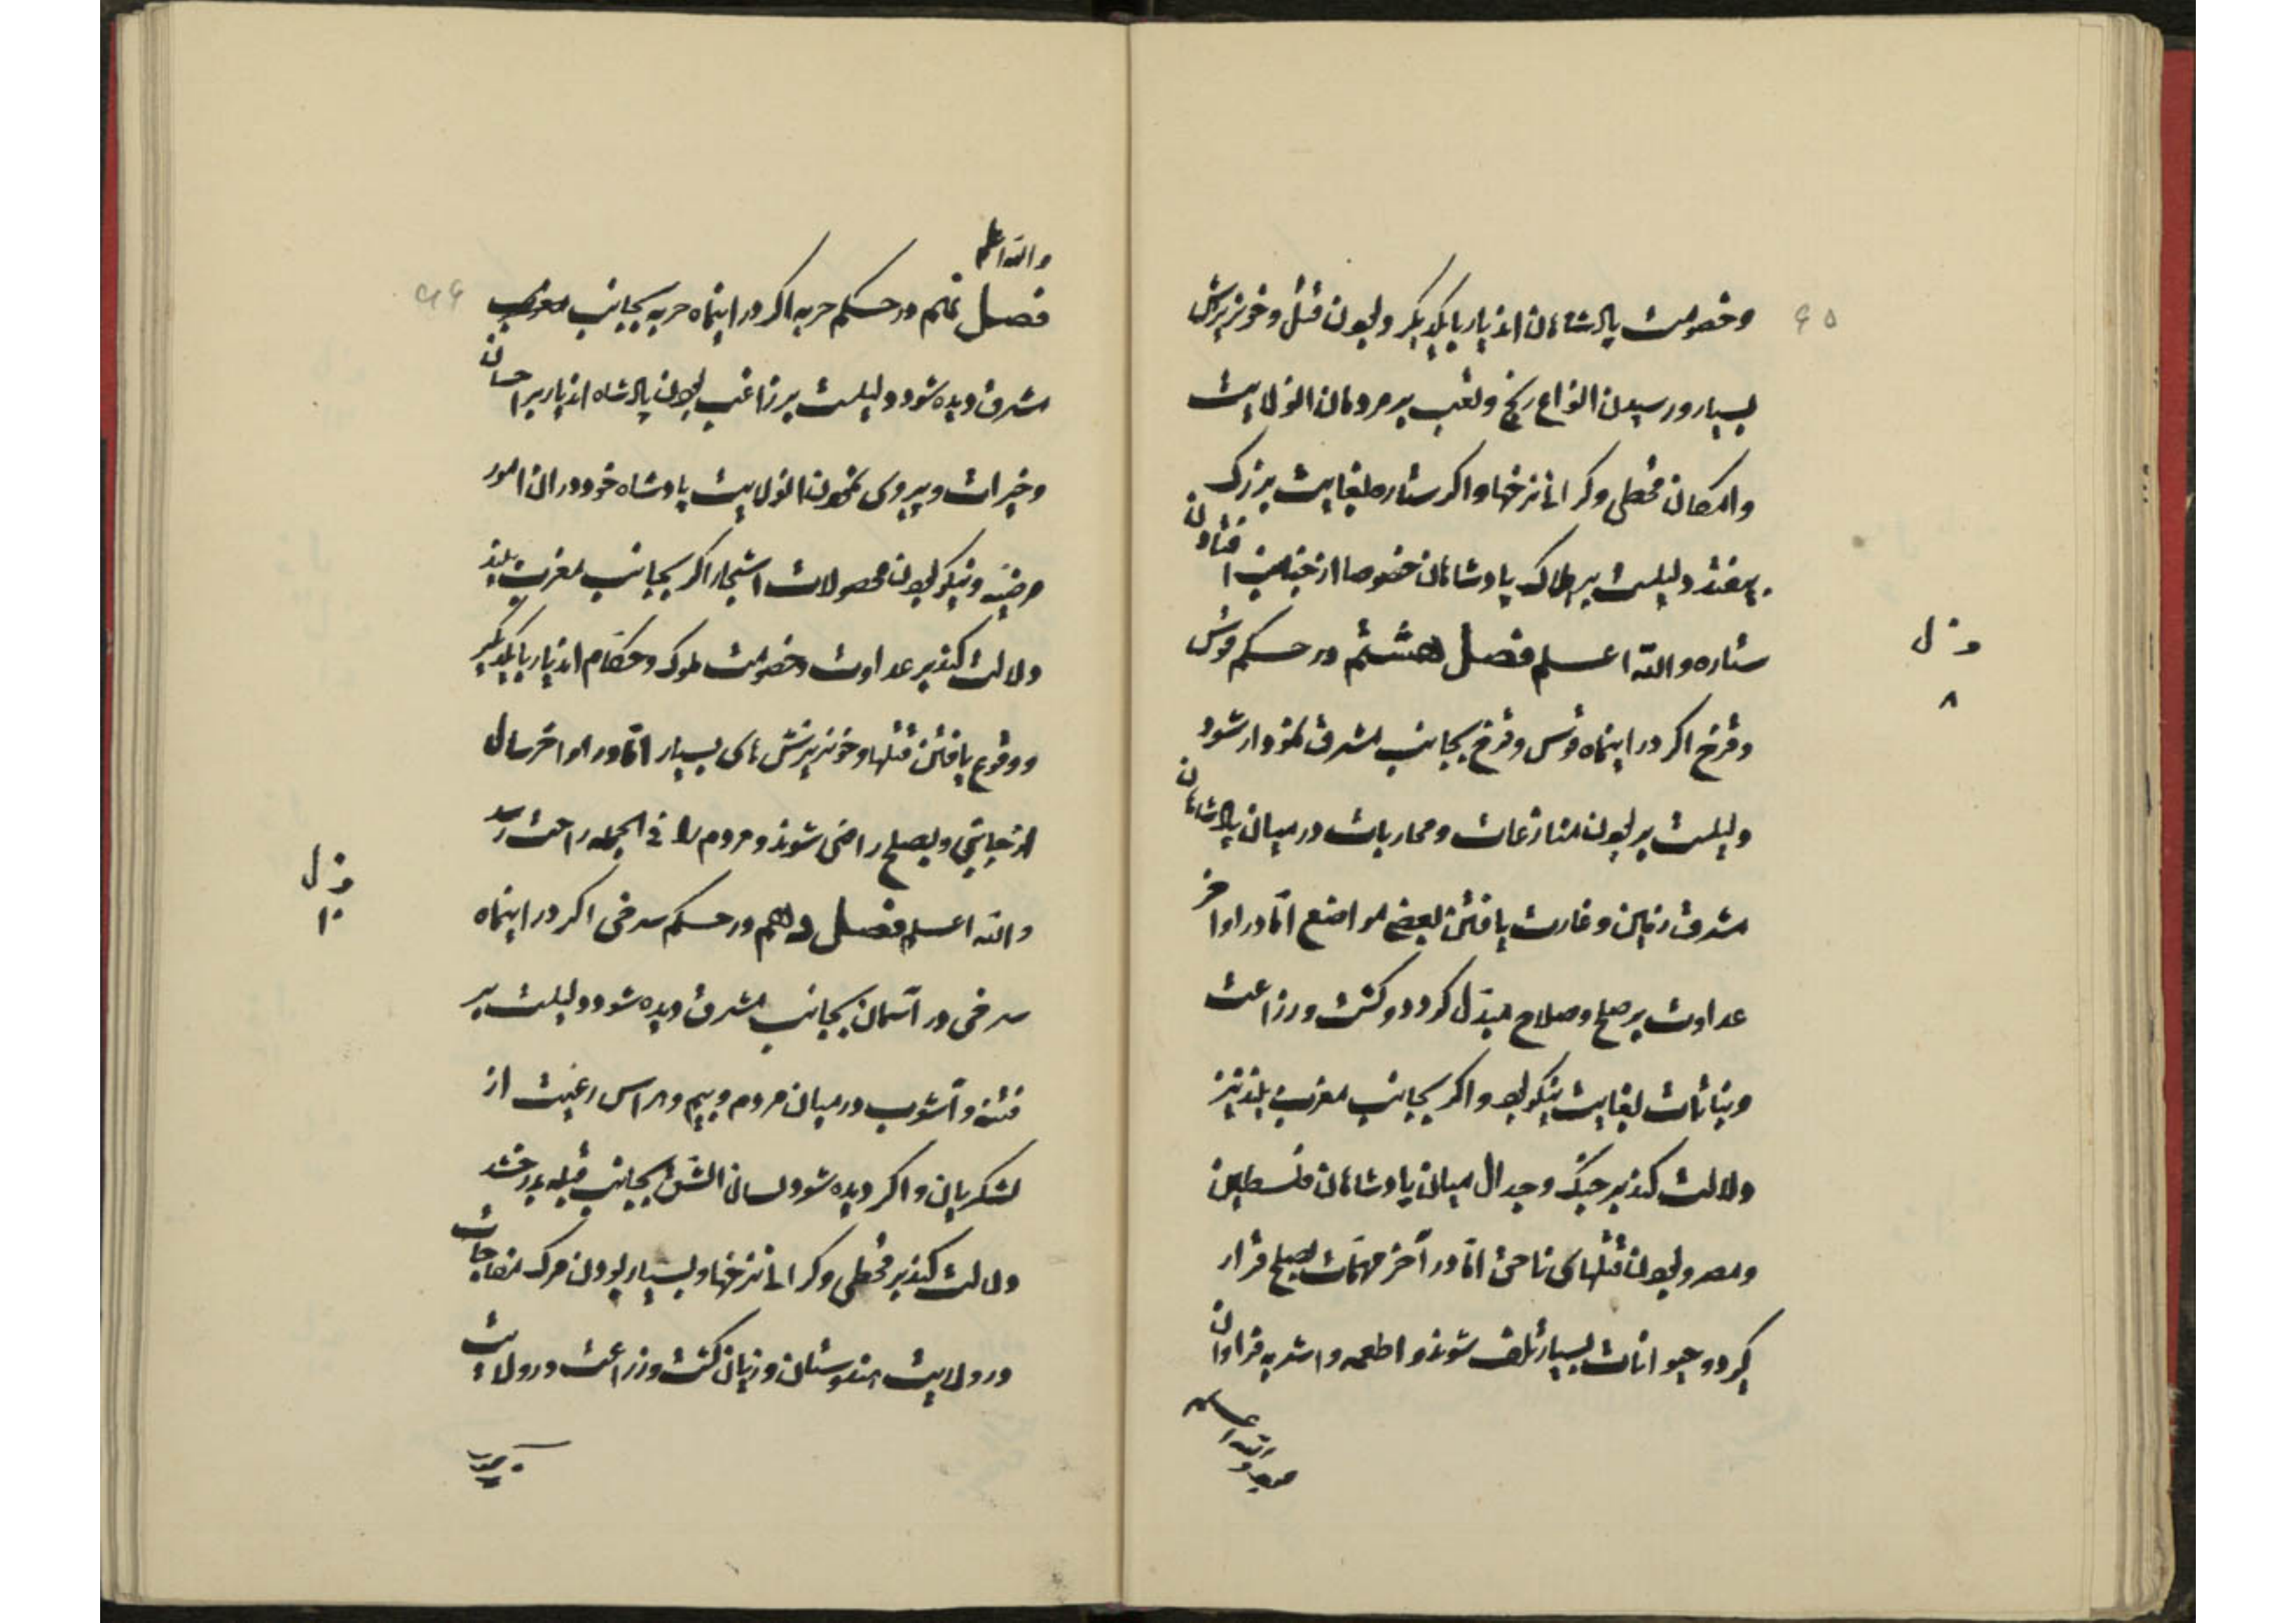 ۶۵
وخصومت پادشاهان اندیار بایکدیگر وبودن قتل وخونریزش
بسیار ورسیدن انواع رنج وتعب بر مردمان انولایت
وامکان قحطی وگرانی نرخها واگر ستاره بغایت بزرگ
بیفتد دلیلست بر هلاک پادشاهان خصوصا از جنس افتادن
ستاره والله اعلم فصل هشتم در حکم قوس
ف ل
۸
وقزح اگر در اینماه قوس وقزح بجانب مشرق نمودار شود
دلیلست بر بودن منازعات ومحاربات در میان پادشاهان
مشرق زمین وغارت یافتن بعضی مواضع اما در اواخر
عداوت بر صلح وصلاح مبدل گردد وکشت وزراعت
ونباتات بغایت نیکو بود واگر بجانب مغرب بلند نیز
دلالت کند بر جنگ وجدال میان پادشاهان فلسطین
ومصر وبودن قتلهای ناحق اما در آخر مهمات بصلح قرار
گیرد وحیوانات بسیار تلف شوند واطعمه واشربه فراوان
بود والله اعلم
۶۶
والله اعلم
فصل نهم در حکم حربه اگر در اینماه حربه بجانب مغرب
مشرق دیده شود دلیلست بر راغب بودن پادشاه اندیار بر احسان
وخیرات وپیروی نمودن انولایت پادشاه خود در ان امور
مرضیه ونیکو بودن محصولات اشجار اگر بجانب مغرب بلند
دلالت کند بر عداوت وخصومت ملوک وحکام اندیار بایکدیگر
ووقوع یافتن قتلها وخونریزش های بسیار اما در اواخر سال
از جانبی وبصلح راضی شوند ومردم را فی الجمله راحت رسد
والله اعلم فصل دهم در حکم سرخی اگر در اینماه
ف ل
۱۰
سرخی در آسمان بجانب مشرق دیده شود دلیلست بر
فتنه وآشوب در میان مردم وبیم وهراس رعیت از
لشکریان واگر دیده شود لسان الشق بجانب قبله بدرخشد
دلالت کند بر قحطی وگرانی نرخها وبسیار بودن مرگ مفاجات
در ولایت هندوستان وزیان کشت وزراعت در ولایت